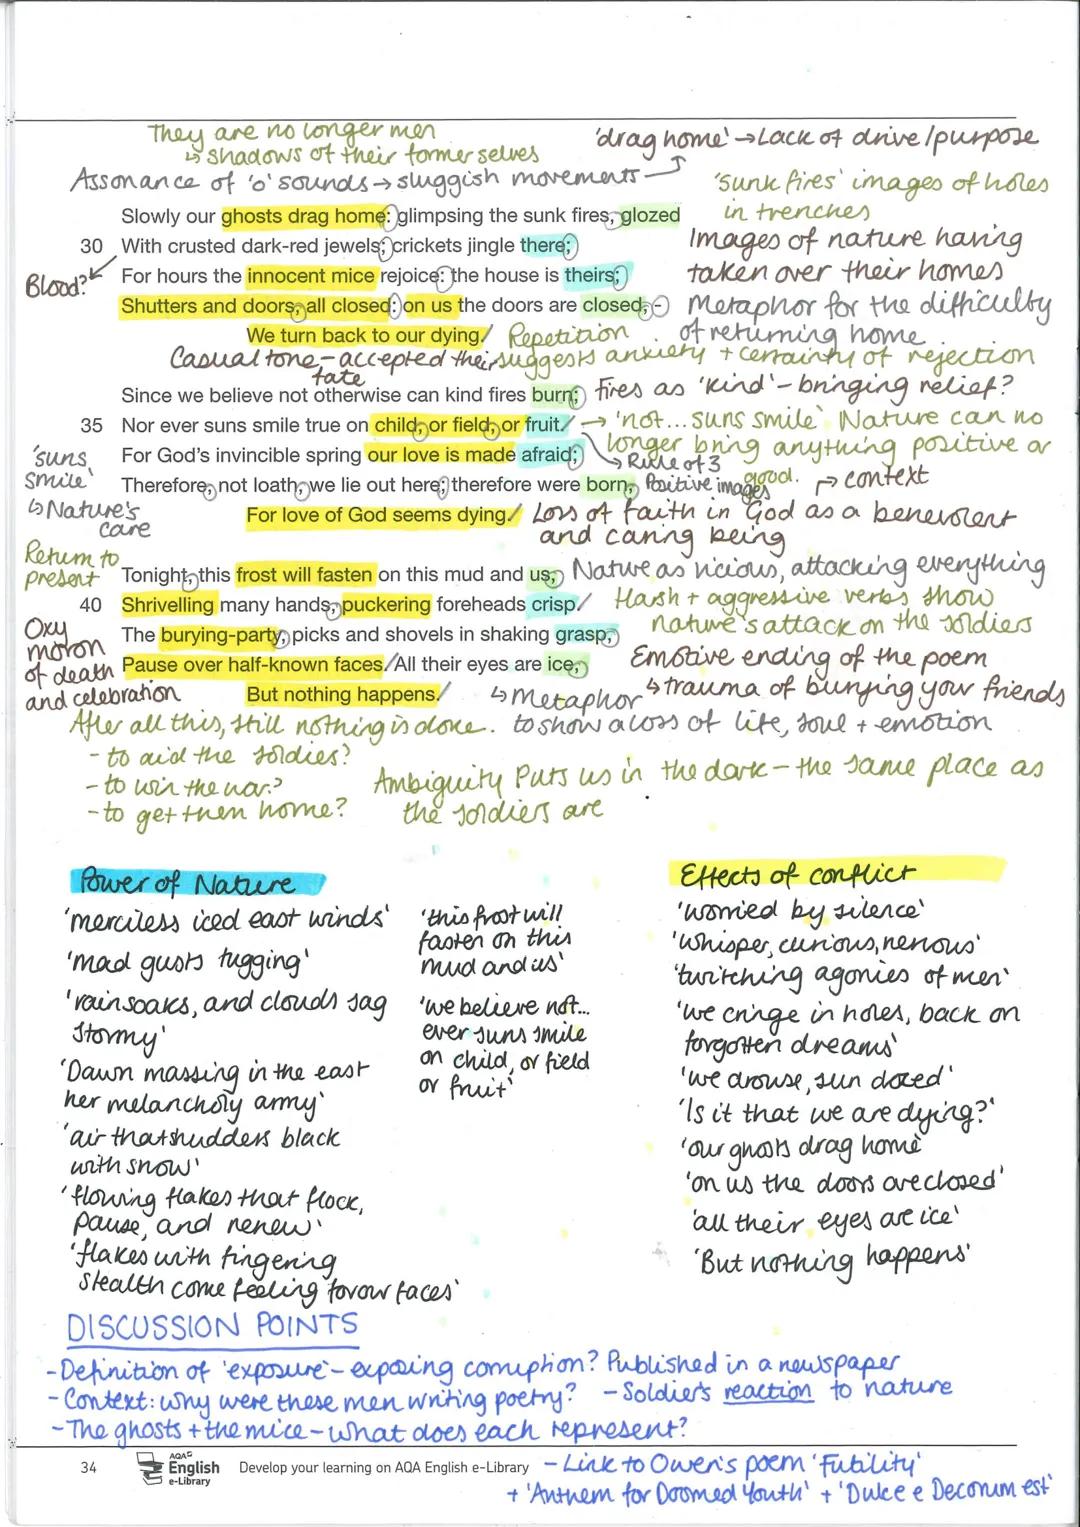 They are no longer men
↳ shadows of their former selves
'drag home' → Lack of drive/purpose
Assonance of 'o' sounds → sluggish movements
'sunk fires' images of holes
in trenches
Slowly our ghosts drag home: glimpsing the sunk fires, glozed
30 With crusted dark-red jewels; crickets jingle there;
Images of nature having
taken over their homes
Blood?
For hours the innocent mice rejoice: the house is theirs;
Shutters and doors, all closed: on us the doors are closed, –
Metaphor for the difficulty
of returning home.
We turn back to our dying.
Repetition
suggests anxiety + certainty of rejection
Casual tone – accepted their
fate
Since we believe not otherwise can kind fires burn;
Fires as 'kind' – bringing relief?
35 Nor ever suns smile true on child, or field, or fruit.
→ 'not... suns smile' Nature can no
longer bring anything positive or
good.
For God's invincible spring our love is made afraid;
↳ Rule of 3
Positive images
'suns
smile'
↳ Nature's
care
Therefore, not loath, we lie out here; therefore were born,
→ context
For love of God seems dying.
Loss of faith in God as a benevolent
and caring being
Return to
present
Tonight, this frost will fasten on this mud and us,
Nature as vicious, attacking everything
40 Shrivelling many hands, puckering foreheads crisp.
Harsh + aggressive verbs show
nature's attack on the soldiers
Oxy
moron
of death
and celebration
The burying-party, picks and shovels in shaking grasp,
Pause over half-known faces. All their eyes are ice,
Emotive ending of the poem
↳ trauma of burying your friends
But nothing happens.
↳ Metaphor
to show a loss of life, soul + emotion
After all this, still nothing is done.
- to aid the soldies?
- to win the war?
- to get them home?
Ambiguity puts us in the dark – the same place as
the soldiers are
Power of Nature
'merciless iced east winds'
'mad gusts tugging'
'rain soaks, and clouds sag
stormy'
'Dawn massing in the east
her melancholy army'
'air that shudders black
with snow'
'flowing flakes that flock,
pause, and renew'
'flakes with fingering
stealth come feeling for our faces'
'this frost will
fasten on this
mud and us'
'we believe not...
ever suns smile
on child, or field
or fruit'
Effects of conflict
'worried by silence'
'whisper, curious, nervous'
'twitching agonies of men'
'we cringe in holes, back on
forgotten dreams'
'we drowse, sun dozed'
'Is it that we are dying?'
'our ghosts drag home'
'on us the doors are closed'
'all their eyes are ice'
'But nothing happens'
DISCUSSION POINTS
- Definition of 'exposure' – exposing corruption? Published in a newspaper
- Context: why were these men writing poetry? - Soldier's reaction to nature
- The ghosts + the mice – what does each represent?
34 AQA English e-Library Develop your learning on AQA English e-Library
- Link to Owen's poem 'Futility'
+ 'Anthem for Doomed Youth' + 'Dulce e Decorum est'